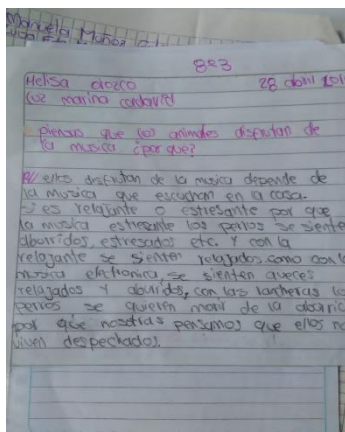 Manuela Muñoz
8°3
Melisa Orozco 28 abril 201
luz marina
piensan que los animales disfrutan de
la musica ¿por que?
R// ellos disfrutan de la musica depende de
la musica que escuchan en la casa.
si es relajante o estresante por que
la musica estresante los perros se siente
aburridos, estresados etc. Y con la
relajante se sienten relajados como con la
musica electronica, se sienten aveces
relajados Y aburridos, con las rancheras los
perros se quieren morir de la aburric
por que nosotras pensamos que ellos no
viven despechados.